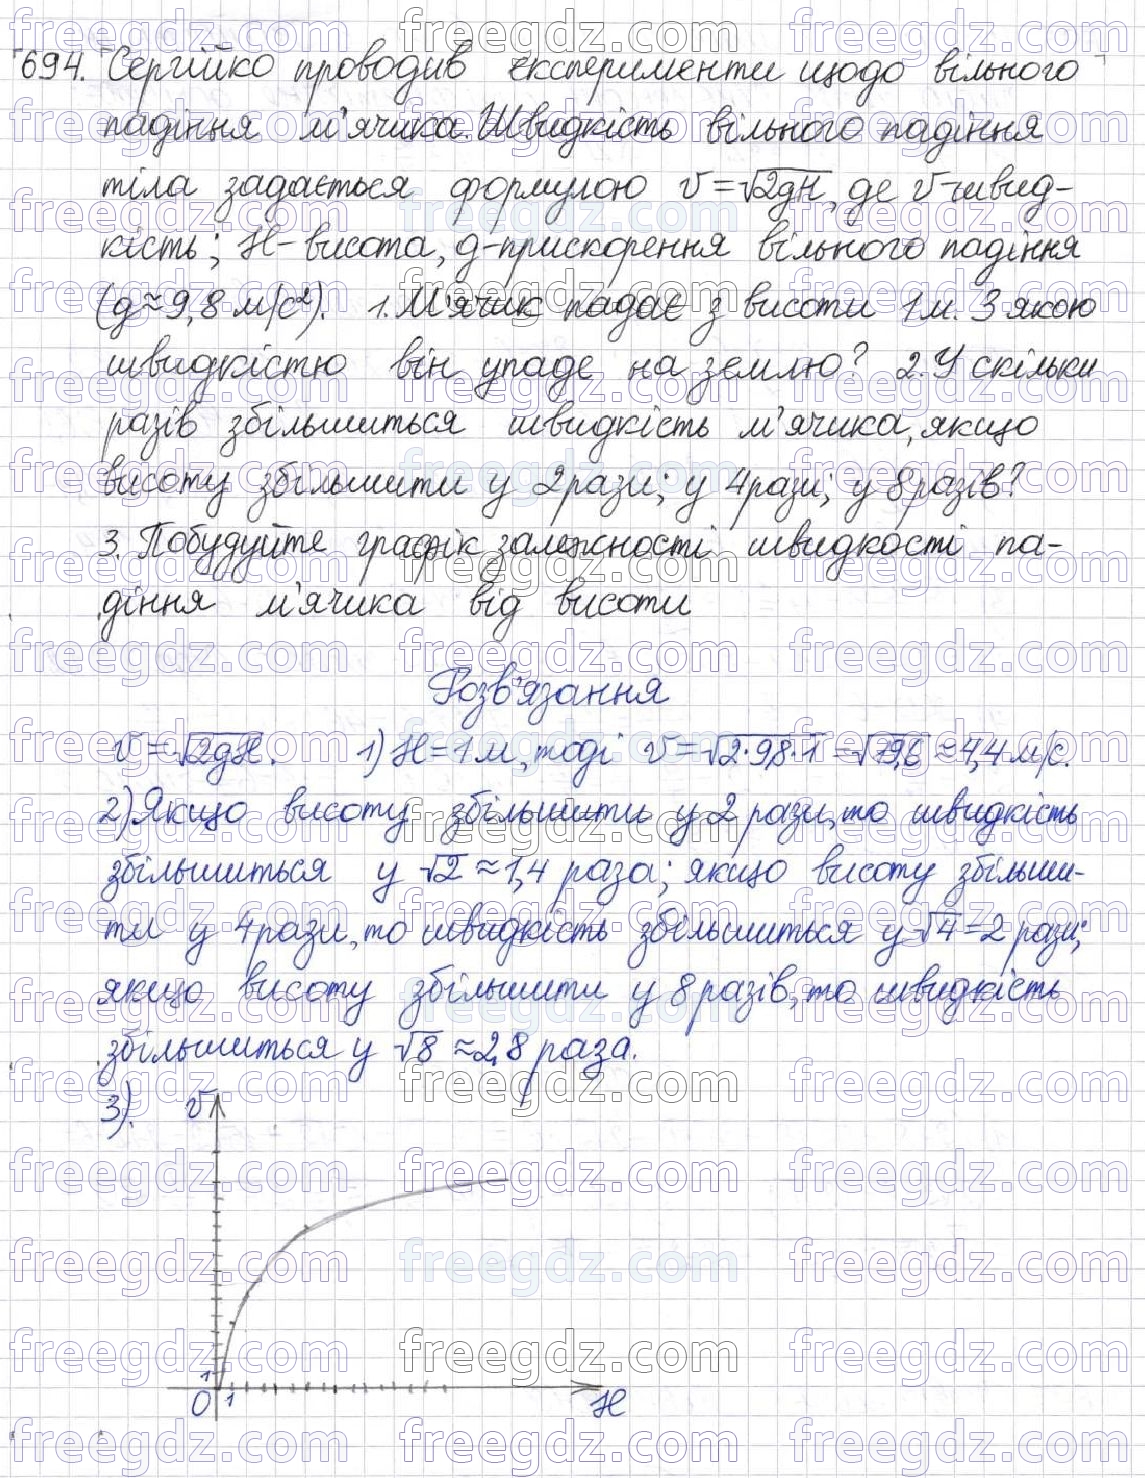 694. Сергійко проводив експерименти щодо вільного
падіння м'ячика. Швидкість вільного падіння
тіла задається формулою v=√2gH, де v-швид-
кість; H-висота, g-прискорення вільного падіння
(g≈9,8 м/с²). 1. М'ячик падає з висоти 1м. З якою
швидкістю він упаде на землю? 2. У скільки
разів збільшиться швидкість м'ячика, якщо
висоту збільшити у 2 рази; у 4 рази; у 8 разів?
3. Побудуйте графік залежності швидкості па-
діння м'ячика від висоти
Розв'язання
v=√2gH. 1) H=1м, тоді v=√2·9,8·1=√19,6≈4,4 м/с.
2) Якщо висоту збільшити у 2 рази, то швидкість
збільшиться у √2≈1,4 раза; якщо висоту збільши-
ти у 4 рази, то швидкість збільшиться у √4=2 рази;
якщо висоту збільшити у 8 разів, то швидкість
збільшиться у √8≈2,8 раза.
3).
v
1
0 1
H
freegdz.com